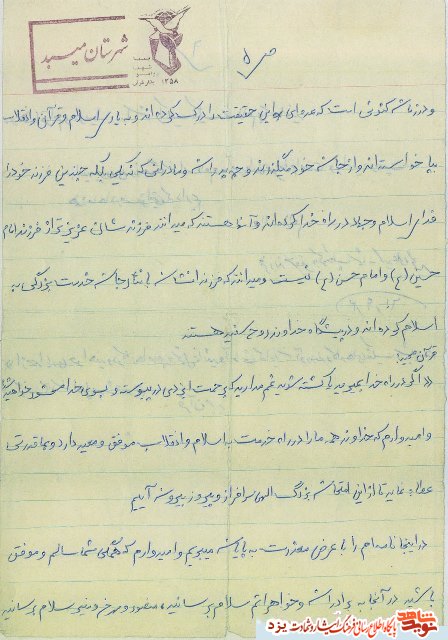 شهرستان میبد
۱۳۵۸
ص ۵
و در زمانه کنونی است که عده‌ای این حقیقت را درک کرده‌اند و به یاری اسلام و قرآن و انقلاب
بپا خواسته‌اند و از جان خود میگذرند و چه پدران و مادرانی که نه یکی بلکه چندین فرزند خود را
فدای اسلام و جهاد در راه خدا کرده‌اند و آنها هستند که میدانند فرزندشان عزیزتر از فرزند امام
حسین (ع) و امام حسن (ع) نیست و میدانند که فرزندانشان با نثار جان خدمت بزرگی به
اسلام کرده‌اند و در پیشگاه خداوند روح سفید هستند
قرآن مجید
«اگر در راه خدا بمیرید یا کشته شوید غم مدارید که به رحمت ایزدی در پیوسته و بسوی خدا محشور خواهید شد»
و امیدوارم که خداوند همه ما را در راه خدمت به اسلام و انقلاب موفق و مؤید دارد و بما قدرتی
عطاء نماید تا از این امتحان بزرگ الهی سرافراز و پیروز بیرون آییم
در اینجا نامه‌ام را با عرض معذرت به پایان میبریم و امیدوارم که همگی شما سالم و موفق
باشید در آنجا به برادران و خواهرانم سلام برسانید، سلام برسانید
نوید شاهد
پایگاه اطلاع رسانی فرهنگ ایثار و شهادت یزد